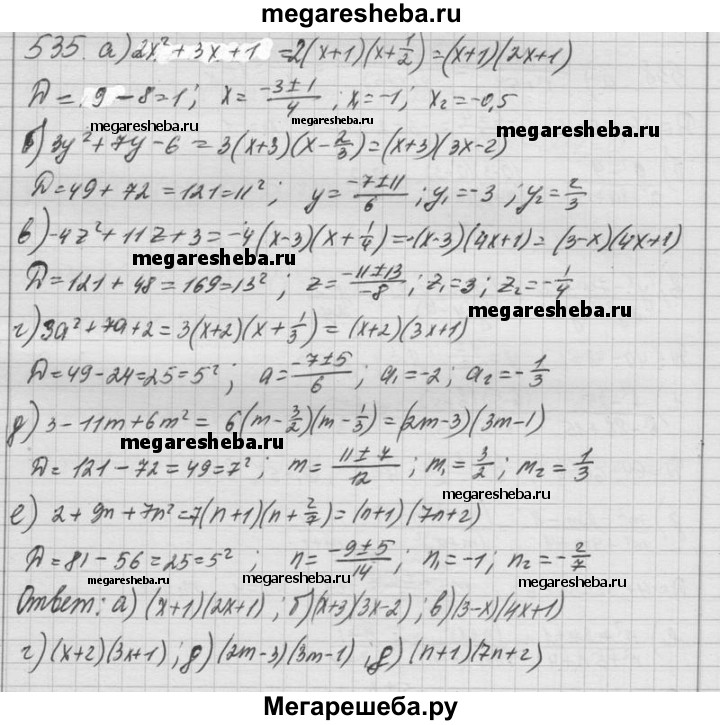 megaresheba.ru
535. а) 2x² + 3x + 1 = 2(x+1)(x+1/2) = (x+1)(2x+1)
D = 9 - 8 = 1; x = (-3±1)/4; x₁ = -1; x₂ = -0,5
megaresheba.ru megaresheba.ru
б) 3y² + 7y - 6 = 3(x+3)(x-2/3) = (x+3)(3x-2)
D = 49 + 72 = 121 = 11²; y = (-7±11)/6; y₁ = -3; y₂ = 2/3
в) -4z² + 11z + 3 = -4(x-3)(x+1/4) = -(x-3)(4x+1) = (3-x)(4x+1)
megaresheba.ru megaresheba.ru
D = 121 + 48 = 169 = 13²; z = (-11±13)/-8; z₁ = 3; z₂ = -1/4
г) 3a² + 7a + 2 = 3(x+2)(x+1/3) = (x+2)(3x+1)
D = 49 - 24 = 25 = 5²; a = (-7±5)/6; a₁ = -2; a₂ = -1/3
д) 3 - 11m + 6m² = 6(m-3/2)(m-1/3) = (2m-3)(3m-1)
megaresheba.ru
D = 121 - 72 = 49 = 7²; m = (11±7)/12; m₁ = 3/2; m₂ = 1/3
megaresheba.ru
е) 2 + 9n + 7n² = 7(n+1)(n+2/7) = (n+1)(7n+2)
D = 81 - 56 = 25 = 5²; n = (-9±5)/14; n₁ = -1; n₂ = -2/7
megaresheba.ru megaresheba.ru megaresheba.ru
Ответ: а) (x+1)(2x+1); б) (x+3)(3x-2); в) (3-x)(4x+1)
г) (x+2)(3x+1); д) (2m-3)(3m-1); д) (n+1)(7n+2)
Мегарешеба.ру